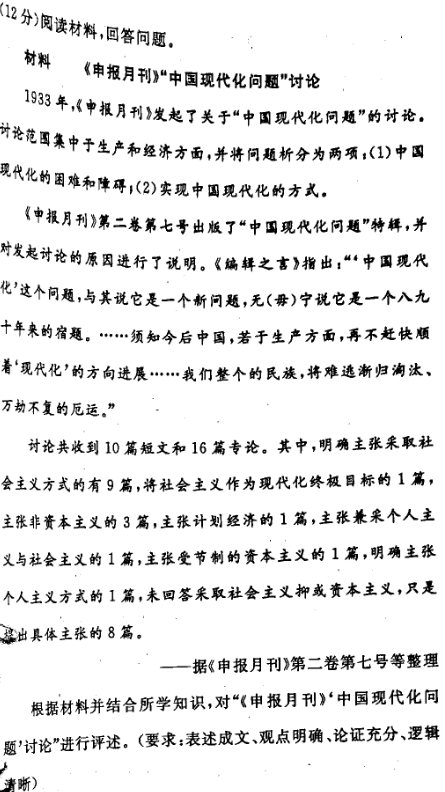 (12分)阅读材料,回答问题。
材料 《申报月刊》“中国现代化问题”讨论
1933年,《申报月刊》发起了关于“中国现代化问题”的讨论。
讨论范围集中于生产和经济方面,并将问题析分为两项:(1)中国
现代化的困难和障碍;(2)实现中国现代化的方式。
《申报月刊》第二卷第七号出版了“中国现代化问题”特辑,并
对发起讨论的原因进行了说明。《编辑之言》指出:“‘中国现代
化’这个问题,与其说它是一个新问题,无(毋)宁说它是一个八九
十年来的宿题。……须知今后中国,若于生产方面,再不赶快顺
着‘现代化’的方向进展……我们整个的民族,将难逃渐归沦汰、
万劫不复的厄运。”
讨论共收到10篇短文和16篇专论。其中,明确主张采取社
会主义方式的有9篇,将社会主义作为现代化终极目标的1篇,
主张非资本主义的3篇,主张计划经济的1篇,主张兼采个人主
义与社会主义的1篇,主张受节制的资本主义的1篇,明确主张
个人主义方式的1篇,未回答采取社会主义抑或资本主义,只是
提出具体主张的8篇。
——据《申报月刊》第二卷第七号等整理
根据材料并结合所学知识,对“《申报月刊》‘中国现代化问
题’讨论”进行评述。(要求:表述成文、观点明确、论证充分、逻辑
清晰)